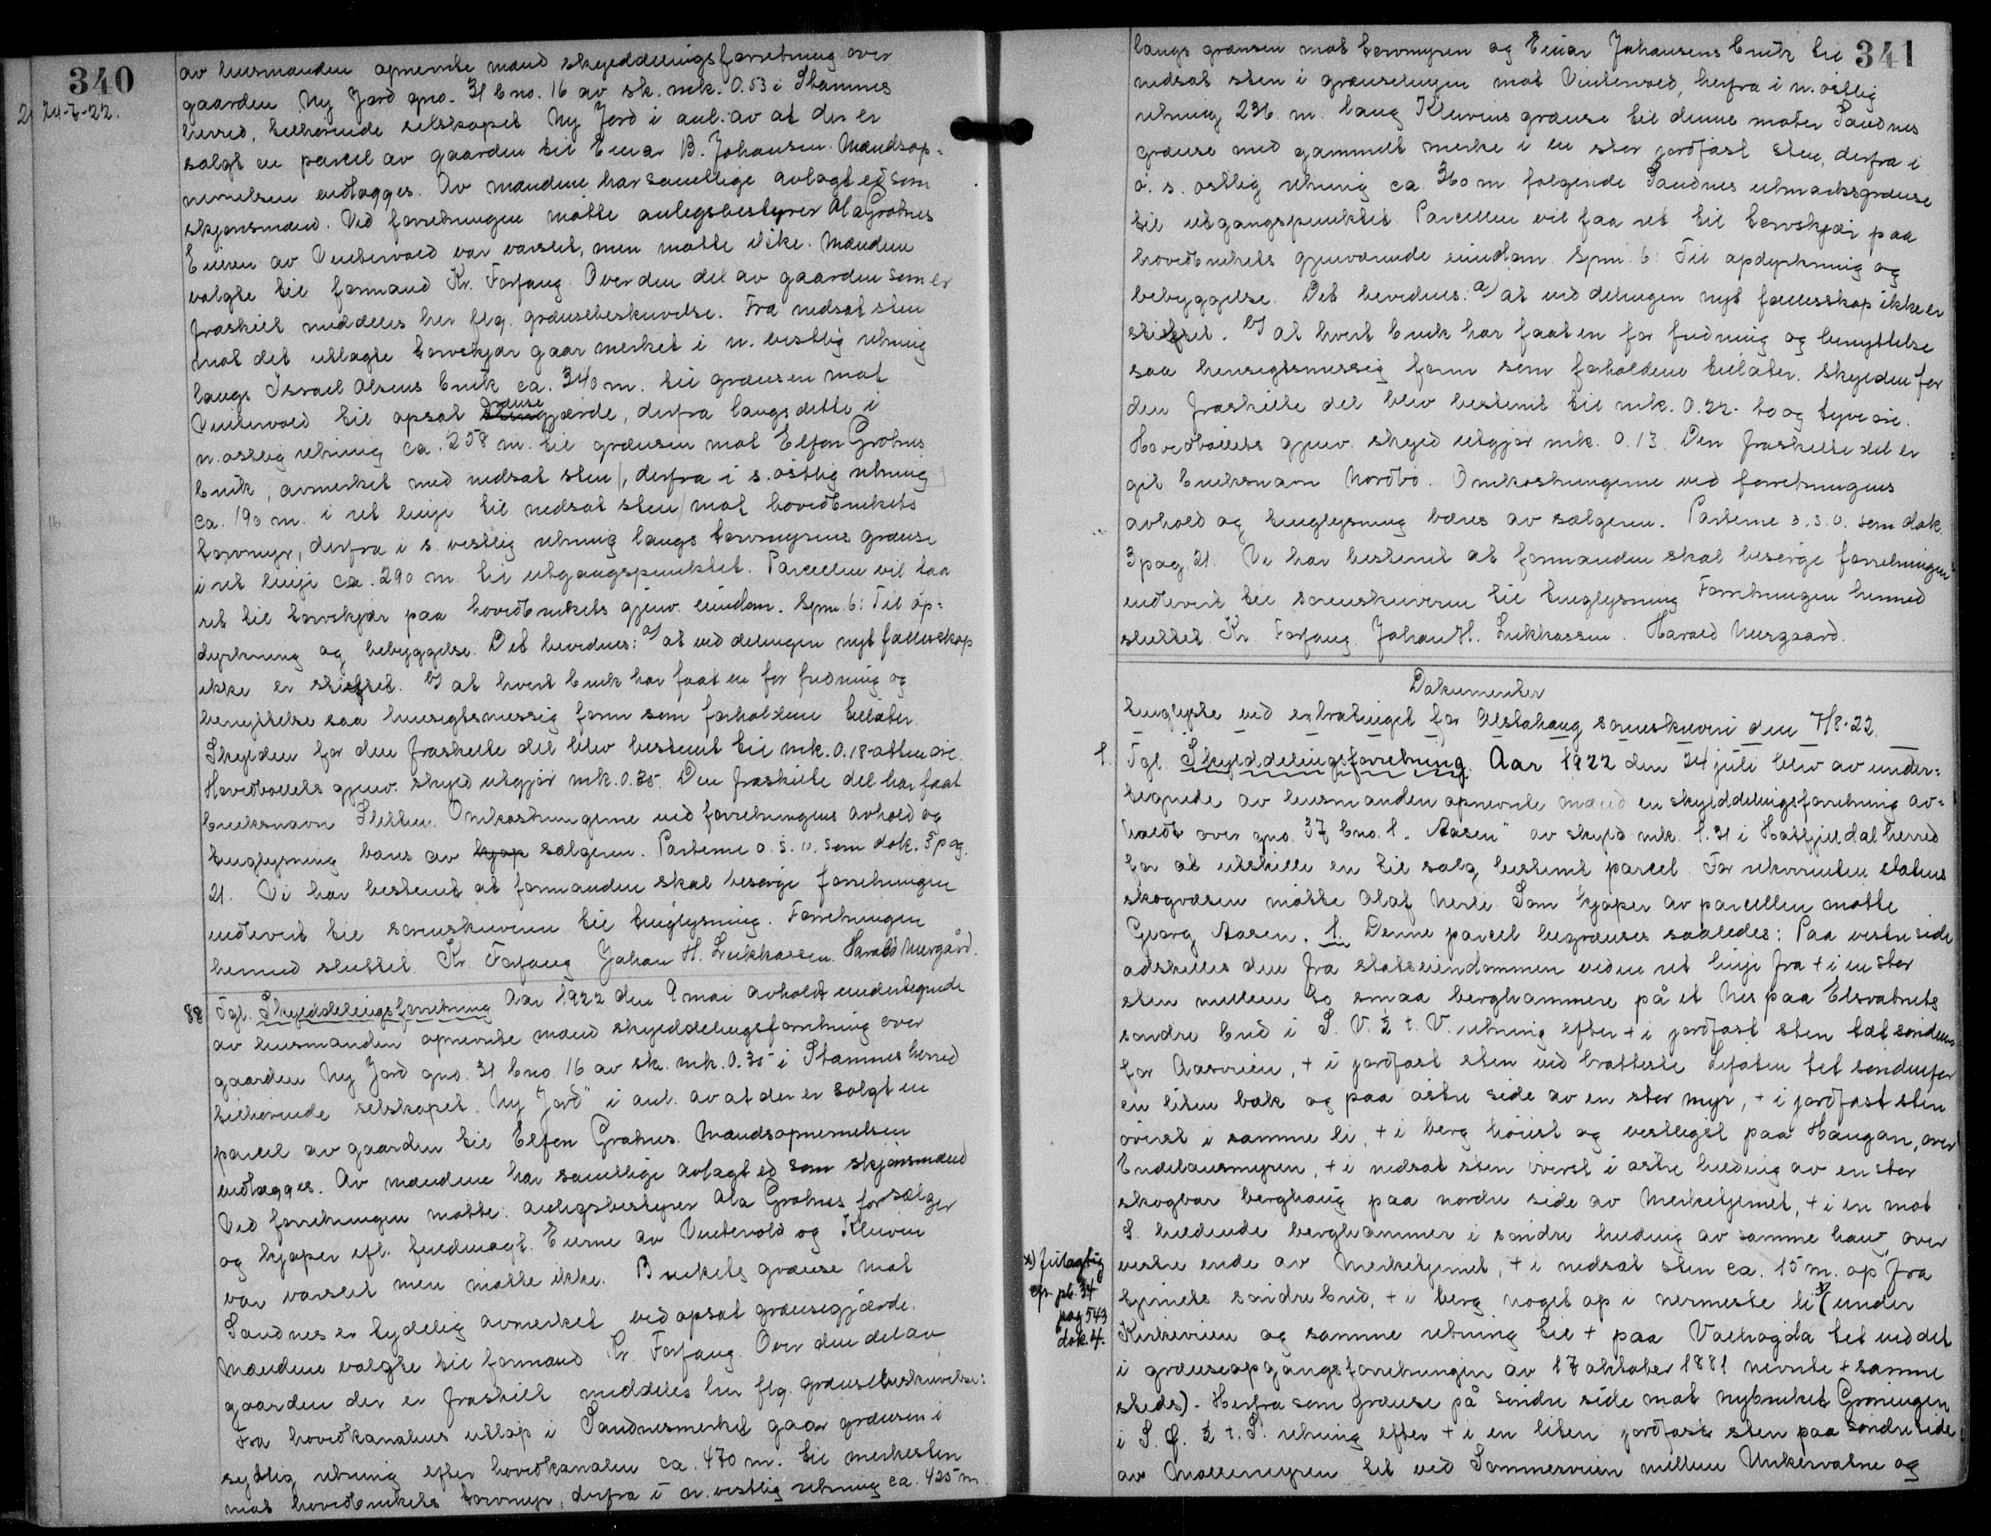 340
20-7-22.
av lensmanden opnevnte mænd skylddelingsforretning over
gaarden Ny Jord gno. 31 bno. 16 av sk. mk. 0.53 i Stamnes
herred, tilhørende selskapet Ny Jord i anl. av at der er
solgt en parcel av gaarden til Einar B. Johansen. Mændsop=
nevnelsen vedlægges. Av mændene har samtlige avlagt ed som
skjønsmænd. Ved forretningen møtte anlegsbestyrer Ola Grøtnes
Eieren av Vintervold var varslet, men møtte ikke. Mændene
valgte til formand Kr. Forfang. Over den del av gaarden som er
fraskilt meddeles her flg. grænsebeskrivelse. Fra nedsat sten
mot det utlagte torvskjær gaar merket i n. vestlig retning
langs Israel Olsens bruk ca. 340 m. til grænsen mot
Vintervold til opsat grænsegjærde, derfra langs dette i
n. østlig retning ca. 258 m. til grænsen mot Elfon Grøtnes
bruk, avmerket med nedsat sten, derfra i s. østlig retning
ca. 190 m. i ret linje til nedsat sten mot hovedbrukets
torvmyr, derfra i s. vestlig retning langs torvmyrens grænse
i ret linje ca. 290 m. til utgangspunktet. Parcellen vil faa
ret til torvskjær paa hovedbrukets gjenv. eiendom. Spm. 6: Til op=
dyrkning og bebyggelse. Det bevidnes: a) at ved delingen nyt fællesskap
ikke er stiftet. b) at hvert bruk har faat en for fredning og
benyttelse saa hensigtsmessig form som forholdene tillater.
Skylden for den fraskilte del blev bestemt til mk. 0.18 - atten øre.
Hovedbølets gjenv. skyld utgjør mk. 0.35. Den fraskilte del har faat
bruksnavn Sletten. Omkostningerne ved forretningens avhold og
tinglysning bæres av sælgeren. Parterne o. s. v. som dok. 3 pag.
21. Vi har bestemt at formanden skal besørge forretningen
indlevert til sorenskriveren til tinglysning. Forretningen
hermed sluttet. Kr. Forfang. Johan H. Lukkassen. Harald Nergård.
88) Tgl. Skylddelingsforretning Aar 1922 den 9 mai avholdt undertegnede
av lensmanden opnevnte mænd skylddelingsforretning over
gaarden Ny Jord gno. 31 bno. 16 av sk. mk. 0.35 i Stamnes herred
tilhørende selskapet "Ny Jord" i anl. av at der er solgt en
parcel av gaarden til Elfon Grøtnes. Mændsopnevnelsen
vedlægges. Av mændene har samtlige avlagt ed som skjønsmænd
Ved forretningen møtte: anlegsbestyrer Ola Grøtnes for sælger
og kjøper efl. fuldmagt. Eierne av Vintervold og Kleiven
var varslet men møtte ikke. Brukets grænse mot
Sandnes er tydelig avmerket ved opsat grænsegjærde.
Mændene valgte til formand Kr. Forfang. Over den del av
gaarden der er fraskilt meddeles her flg. grænsebeskrivelse:
Fra hovedkanalens utløp i Sandnesmerket gaar grænsen i
sydlig retning efter hovedkanalen ca. 470 m. til merkesten
mot hovedbrukets torvmyr, derfra i n. vestlig retning ca. 425 m.
341
langs grænsen mot torvmyren og Einar Johansens bruk til
nedsat sten i grænselinjen mot Vintervold, herfra i n. østlig
retning 236 m. lang Kleivens grænse til denne møter Sandnes
grænse med gammelt merke i en stor jordfast sten, derfra i
ø. s. østlig retning ca. 360 m følgende Sandnes utmarksgrænse
til utgangspunktet. Parcellen vil faa ret til torvskjær paa
hovedbrukets gjenværende eiendom. Spm. 6: Til opdyrkning og
bebyggelse. Det bevidnes: a) at ved delingen nyt fællesskap ikke er
stiftet. b) at hvert bruk har faat en for fredning og benyttelse
saa hensigtsmessig form som forholdene tillater. Skylden for
den fraskilte del blev bestemt til mk. 0.22 - to og tyve øre.
Hovedbølets gjenv. skyld utgjør mk. 0.13. Den fraskilte del er
git bruksnavn Nordbo. Omkostningerne ved forretningens
avhold og tinglysning bæres av sælgeren. Parterne o. s. v. som dok.
3 pag. 21. Vi har bestemt at formanden skal besørge forretningen
indlevert til sorenskriveren til tinglysning. Forretningen hermed
sluttet. Kr. Forfang. Johan H. Lukkassen. Harald Nergaard.
Dokumenter
tinglyste ved extratinget for Alstahaug sorenskriveri den 7/8-22.
1. Tgl. Skylddelingsforretning. Aar 1922 den 24 juli blev av under=
tegnede av lensmanden opnevnte mænd en skylddelingsforretning av=
holdt over gno. 37 bno. 1. "Aasen" av skyld mk. 1.21 i Hatfjeldal herred
for at utskille en til salg bestemt parcel. For rekvirenten statens
skogvæsen møtte Olaf Nerli. Som kjøper av parcellen møtte
Georg Aasen. 1. Denne parcel begrænses saaledes: Paa vestre side
adskilles den fra statseiendommen ved en ret linje fra + i en stor
sten mellem to smaa berghammere på et nes paa Elsvatnets
søndre bred i S. V. ½ t. V. retning efter + i jordfast sten tæt søndenn
for Aasveien, + i jordfast sten ved bratteste Lifoten tet søndenfor
en liten bæk og paa østre side av en stor myr, + i jordfast sten
øverst i samme li, + i berg høiest og vestligst paa Haugan, over
Endelausmyren, + i nedsat sten øverst i østre helding av en stor
skogbar berghaug paa nordre side av Merketjernet, + i en mot
S. heldende berghammer i søndre helding av samme haug, over
vestre ende av Merketjernet, + i nedsat sten ca. 15 m. op fra
tjernets søndre bred, + i berg noget op i nermeste li x) (under
Kirkeveien og samme retning til + paa Valhøgda tet ved det
i grænseopgangsforretningen av 17 oktober 1881 nevnte + samme
steds). Herfra som grænse på søndre side mot nybruket Grøningen
i S. Ø. ½ t. S. retning efter + i en liten jordfast sten paa søndre side
av Mollemyren tet ved Sommerveien mellem Unkervatne og
x) feilagtig
cfr. pb. 34
pag 543
dok. 4.